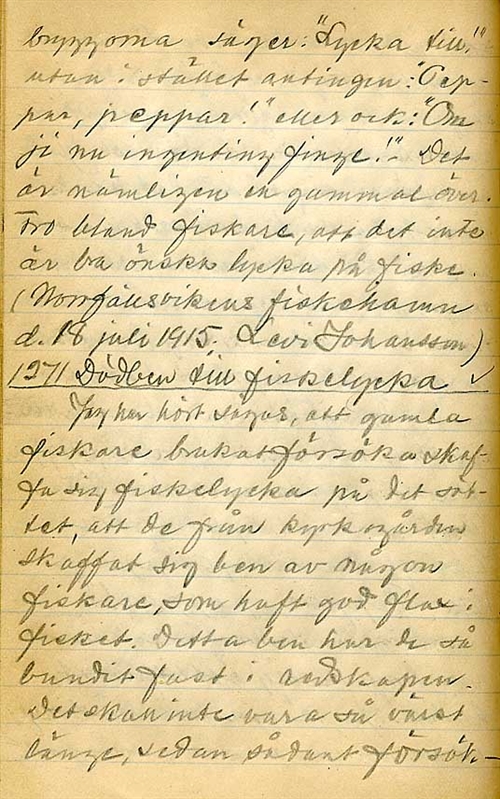 bryggorna säger: "Lycka till!"
utan i stället antingen: "Pep-
par, peppar!" eller ock: "Om
ji nu ingenting finge!" Det
är nämligen en gammal över-
tro bland fiskare, att det inte
är bra önska lycka på fiske.
(Norrfällsvikens fiskehamn
d. 18 juli 1915. Levi Johansson)
1371 Dödben till fiskelycka ✓
Jag har hört sägas, att gamla
fiskare brukat försöka skaf-
fa sig fiskelycka på det sät-
tet, att de från kyrkogården
skaffat sig ben av någon
fiskare, som haft god flax i
fisket. Detta ben har de så
bundit fast i redskapen.
Det skall inte vara så värst
länge, sedan sådant försök-